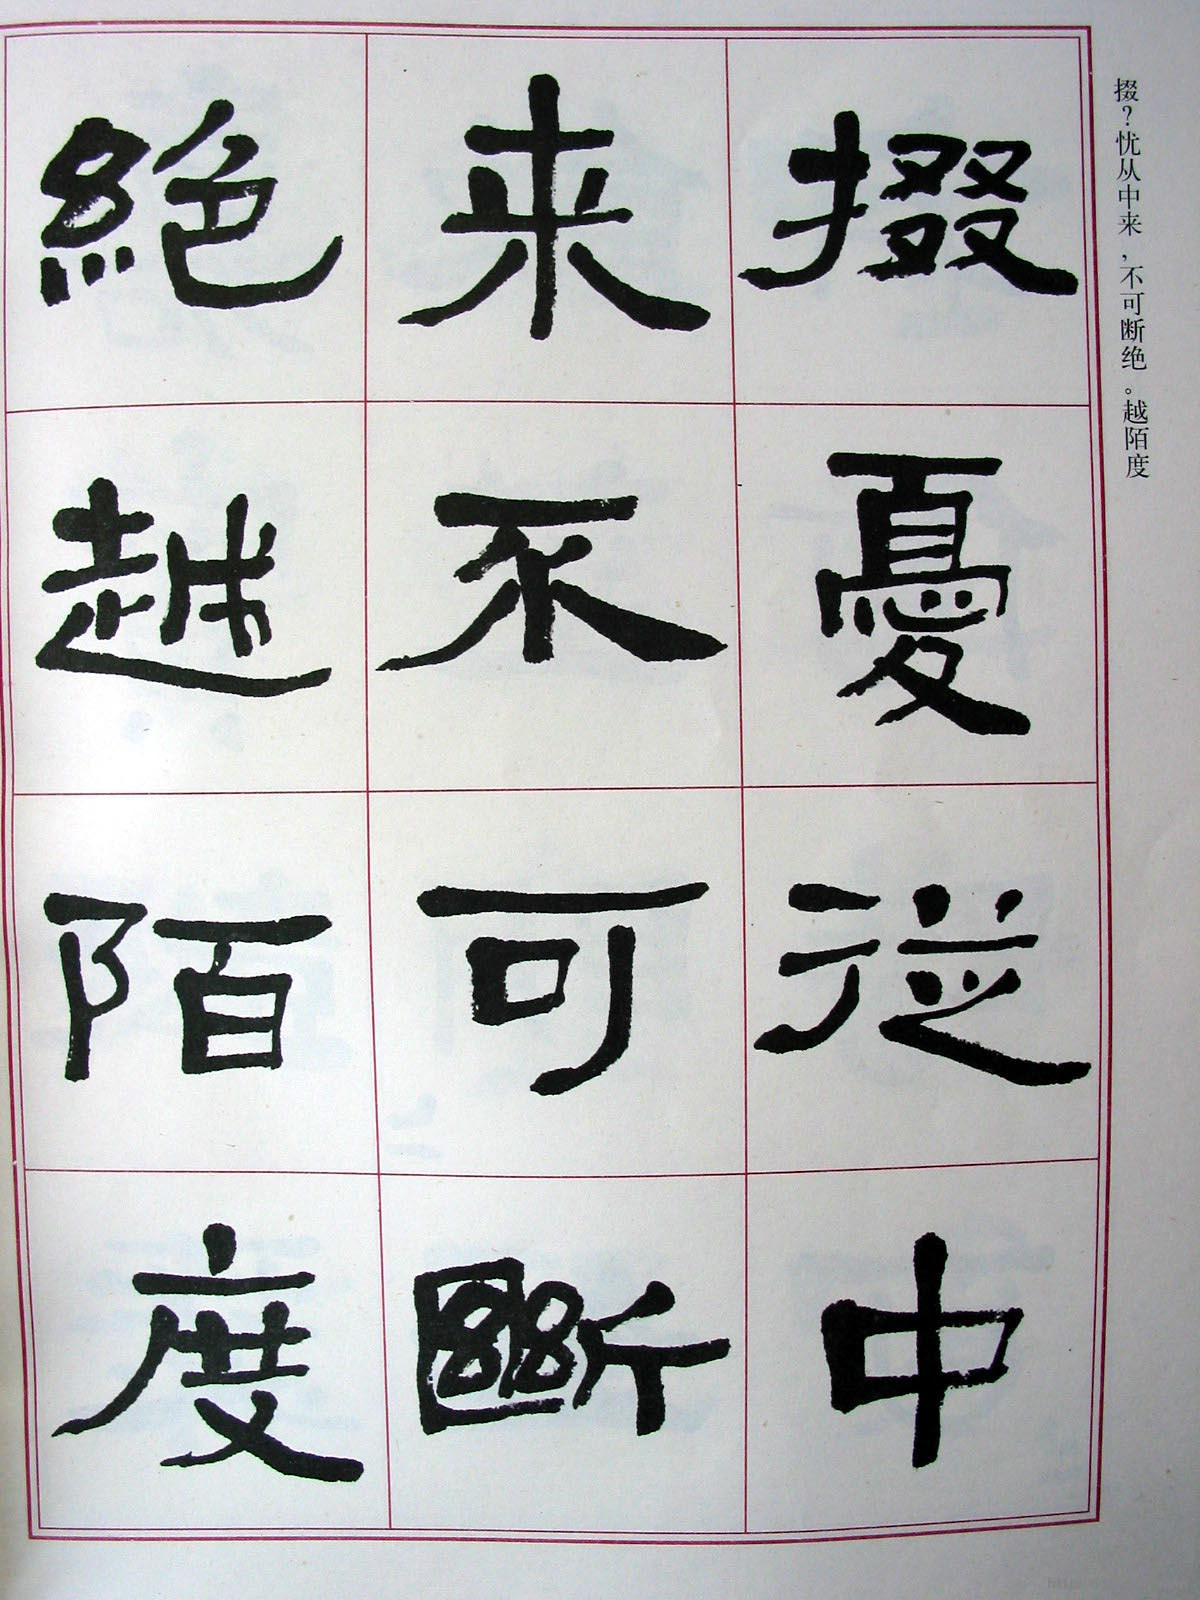 掇憂從中
来不可斷
絶越陌度
掇？忧从中来，不可断绝。越陌度